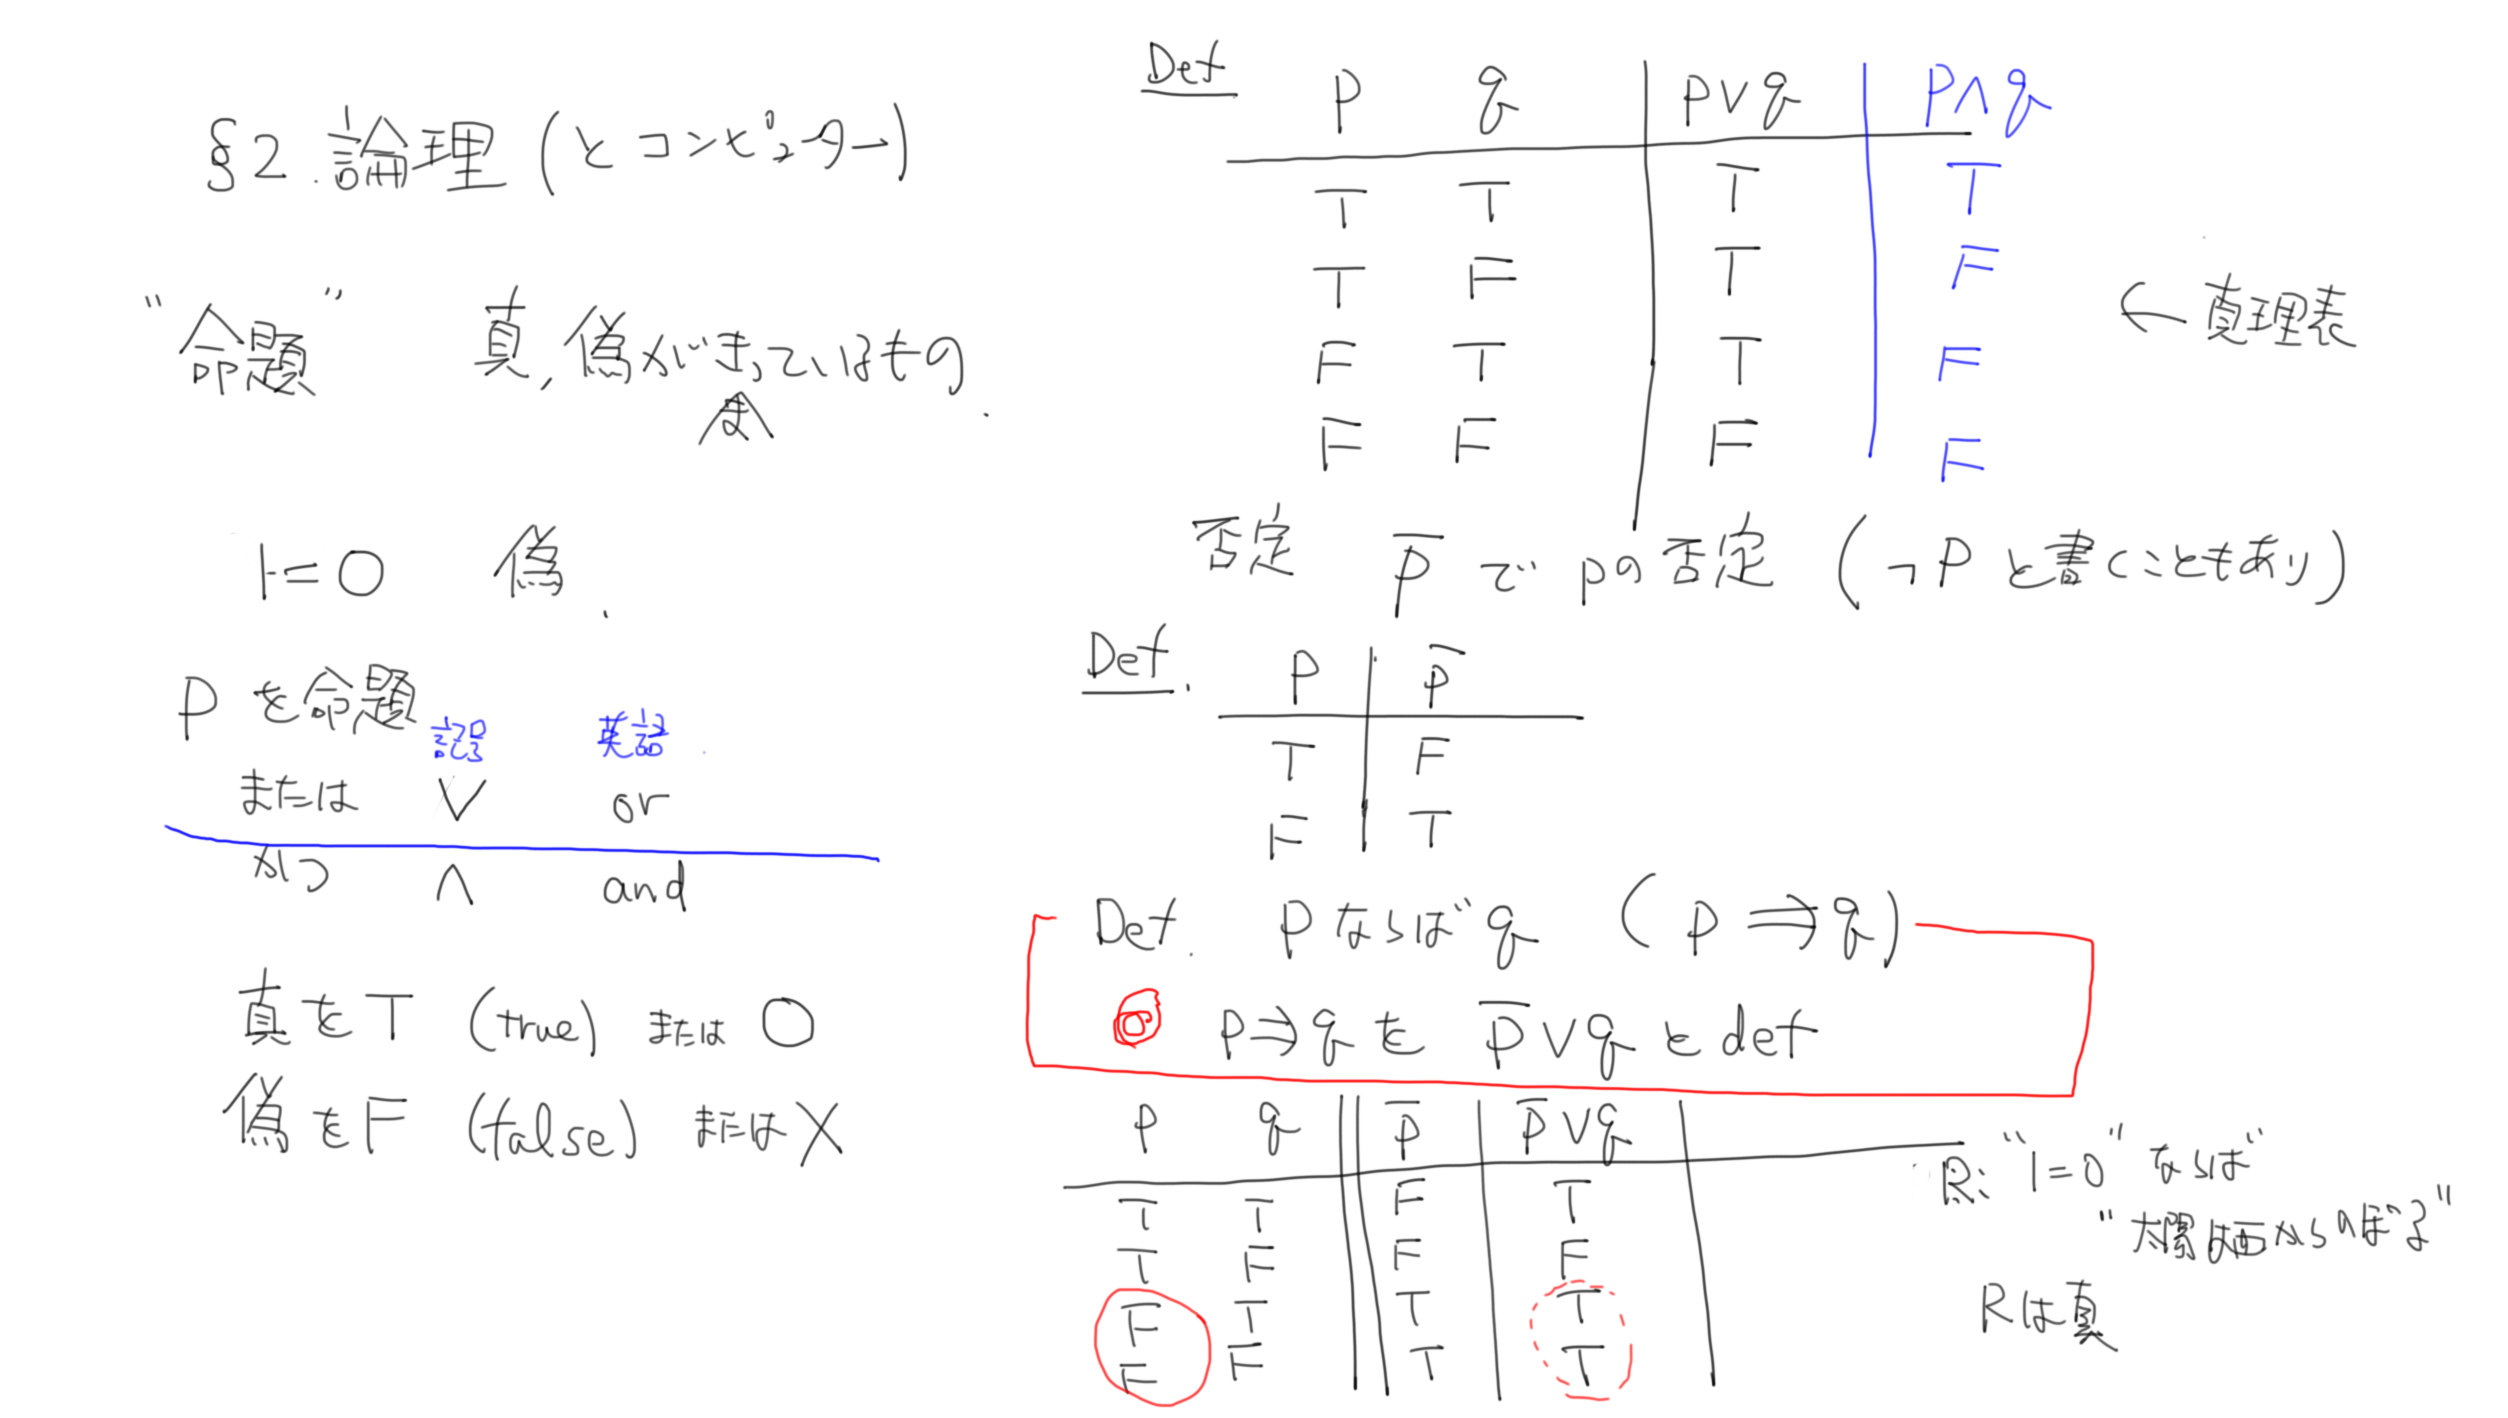 §2. 論理(とコンピューター)
"命題" 真,偽がきまっているもの.
決
1=0 偽.
Pを命題
記号 英語
または ∨ or
かつ ∧ and
真をT (true) または O
偽をF (false) または X
Def
P q P∨q P∧q
T T T T
T F T F
F T T F
F F F F
← 真理表
否定 P̅ で Pの否定 (¬P と書くこともあり)
Def.
P P̅
T F
F T
Def. P ならば q (P ⇒ q)
P⇒q を P̅∨q と def
P q P̅ P̅∨q
T T F T
T F F F
F T T T
F F T T
R: "1=0" ならば
"太陽は西からのぼる"
Rは真